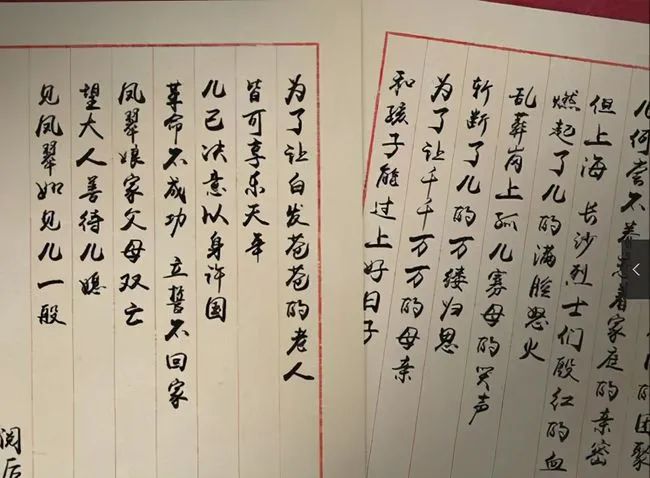 的团聚
儿何尝不眷恋着家庭的亲密
但上海 长沙烈士们殷红的血
燃起了儿的满脸怒火
乱葬岗上孤儿寡母的哭声
斩断了儿的万缕归思
为了让千千万万的母亲
和孩子能过上好日子
为了让白发苍苍的老人
皆可享乐天年
儿已决意以身许国
革命不成功 立誓不回家
凤翠娘家父母双亡
望大人善待儿媳
见凤翠如见儿一般
阅后